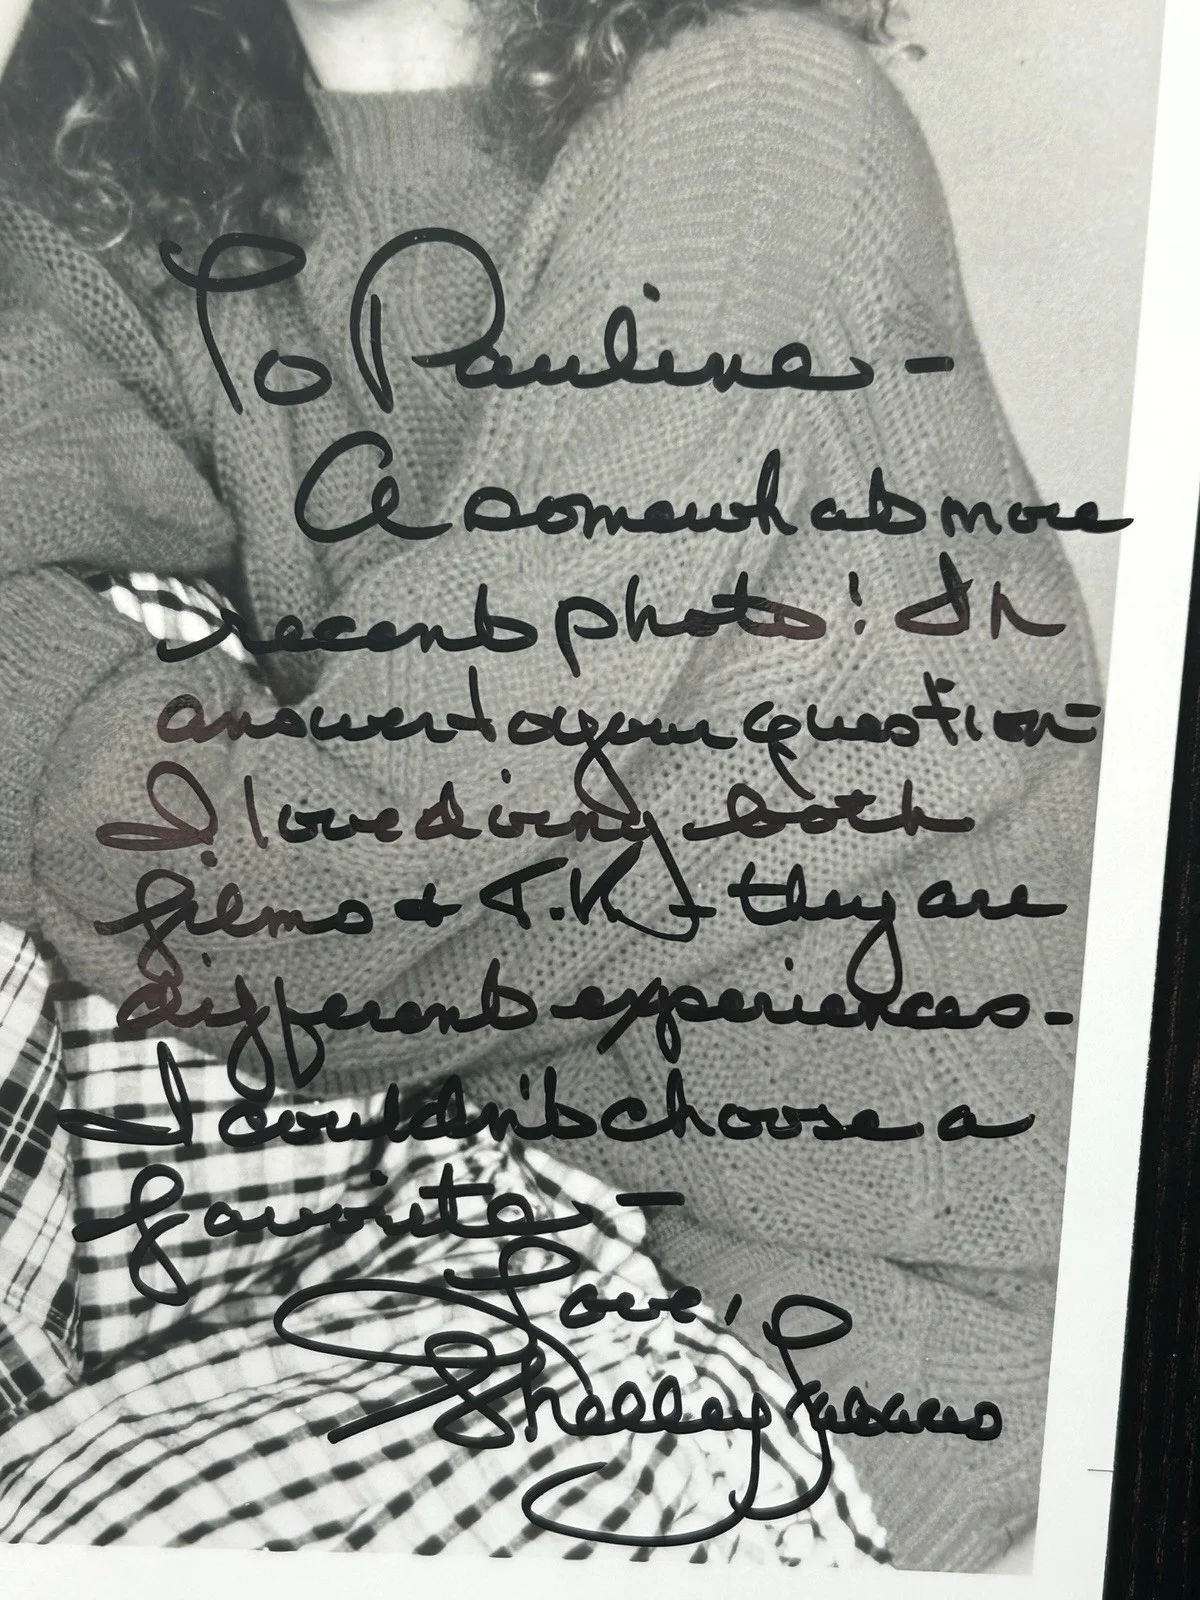 To Pauline -
A somewhat more
recent photo! In
answer to your question -
I loved doing both
films & T.V. + they are
different experiences -
I couldn't choose a
favorite -
Love,
Shelley Fabares